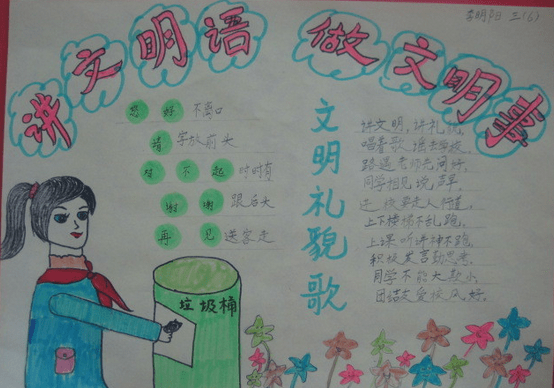 讲文明语 做文明事
李明阳 三(6)
您好不离口
请字放前头
对不起时时有
谢谢跟后头
再见送客走
垃圾桶
文明礼貌歌
讲文明,讲礼貌,
唱着歌谣去学校,
路遇老师先问好,
同学相见说声早,
进校要走人行道,
上下楼梯不乱跑,
上课听讲神不跑,
积极发言勤思考,
同学不能大欺小,
团结友爱校风好。